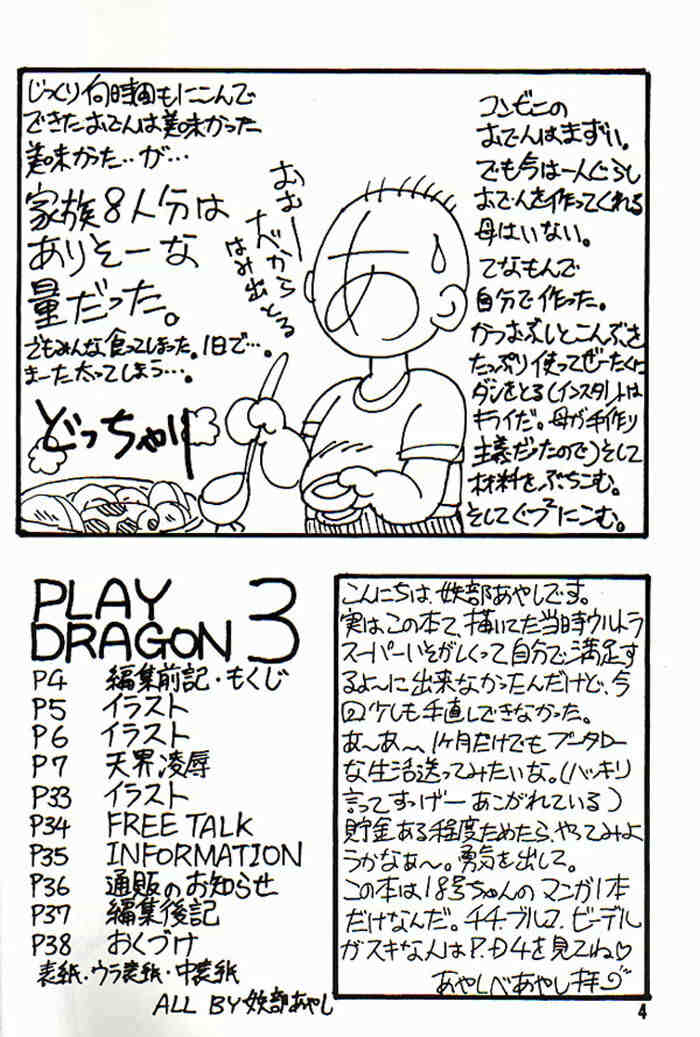 コンビニの
おでんはまずい。
でも今は一人ぐらし
おでんを作ってくれる
母はいない。
てなもんで
自分で作った。
かつおぶしとこんぶを
たっぷり使ってぜーたくに
ダシをとる(インスタントは
キライだ。母が手作り
主義だったので)そして
材料をぶちこむ。
そしてぐつ²にこむ。
じっくり何時間もにこんで
できたおでんは美味かった
美味かった‥が…
家族8人分は
ありそーな
量だった。
でもみんな食ってしまった。1日で…。
まーた太ってしまう…。
おむー
ナベから
はみ出とる
どっちゃり
PLAY
DRAGON 3
P4 編集前記・もくじ
P5 イラスト
P6 イラスト
P7 天界凌辱
P33 イラスト
P34 FREE TALK
P35 INFORMATION
P36 通販のお知らせ
P37 編集後記
P38 おくづけ
表紙・ウラ表紙・中表紙
ALL BY 妖部あやし
こんにちは、妖部あやしです。
実は、この本て、描いてた当時ウルトラ
スーパーいそがしくって自分で満足す
るよ〜に出来なかったんだけど、今
回少しも手直しできなかった。
あ〜あ〜、1ヶ月だけでもプータロー
な生活送ってみたいな。(ハッキリ
言ってすっげーあこがれている)
貯金ある程度ためたら、やってみよ
うかなぁ〜。勇気を出して。
この本は18号ちゃんのマンガ1本
だけなんだ。チチ、ブルマ、ビーデル
がスキな人はP.D4を見てね♡
あやしべあやし拝
4